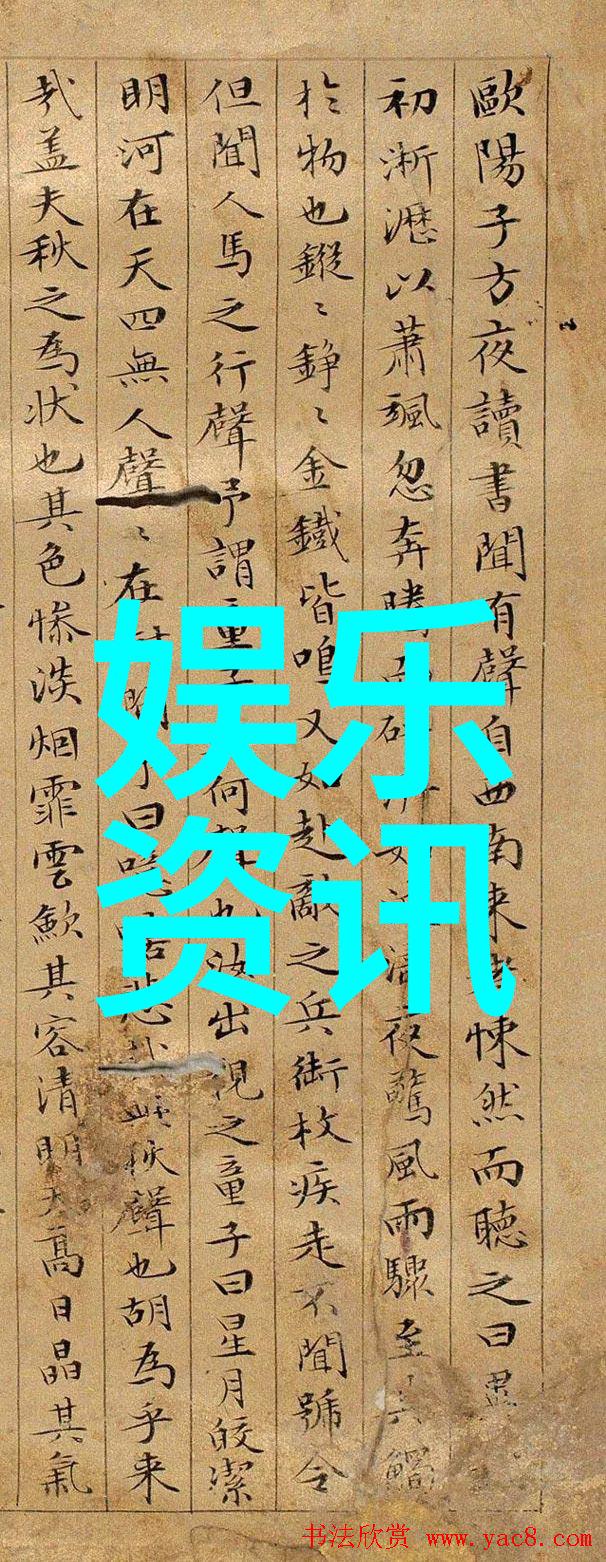 歐陽子方夜讀書聞有聲自西南来者悚然而聴之曰異
初淅瀝以蕭颯忽奔騰而砰湃如波濤夜驚風雨驟至其觸
於物也鏦〻錚〻金鐵皆鳴又如赴敵之兵銜枚疾走不聞號令
但聞人馬之行聲予謂童子何聲也汝出視之童子曰星月皎潔
明河在天四無人聲〻在間予曰噫嘻悲秋聲也胡為乎来
㢤盖夫秋之為状也其色惨淡烟霏雲歛其容清明天高日晶其氣
娱乐
资讯
书法欣赏 www.yac8.com